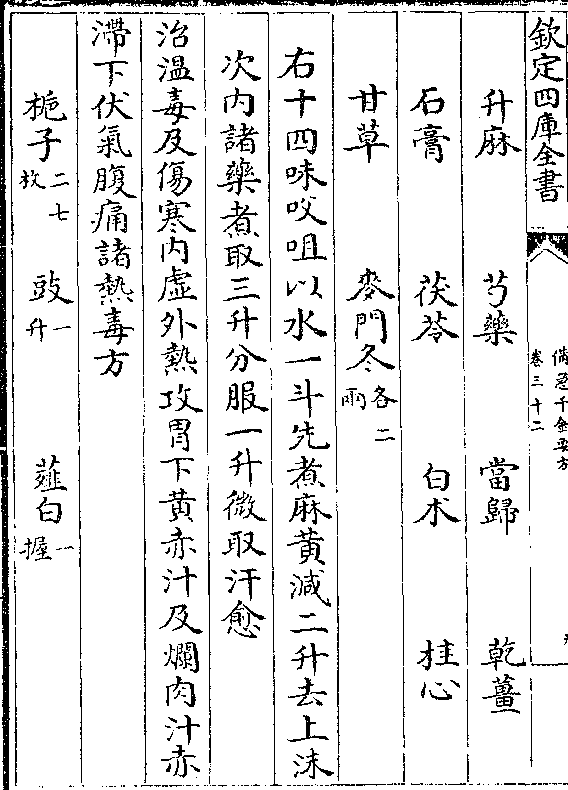 欽定四庫全書
備急千金要方
卷三十二
升麻 芍藥 當歸 乾薑
石膏 茯苓 白朮 桂心
甘草 麥門冬各二兩
右十四味㕮咀以水一斗先煮麻黄減二升去上沫
次内諸藥煮取三升分服一升微取汗愈
治温毒及傷寒内虚外熱攻胃下黄赤汁及爛肉汁赤
滯下伏氣腹痛諸熱毒方
梔子二七枚 豉一升 薤白一握